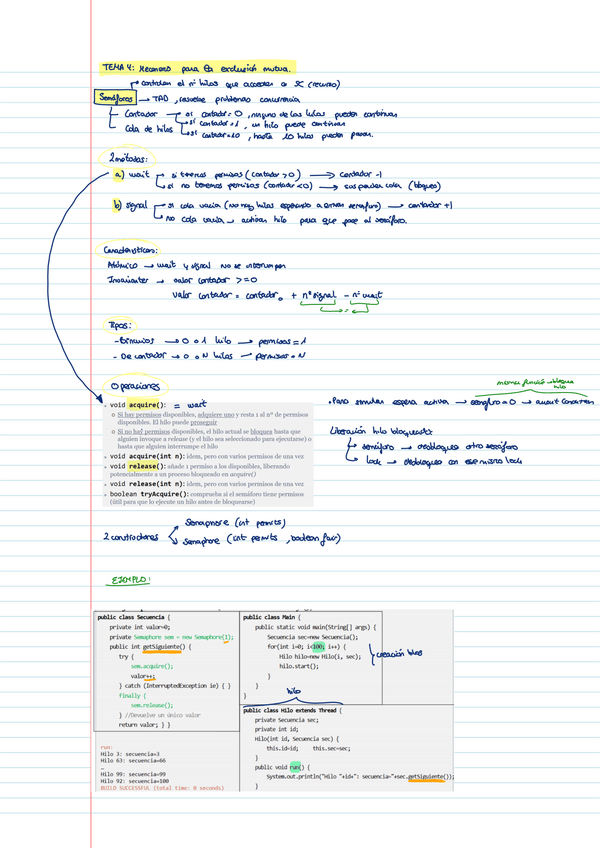 TEMA 4: Mecanismos para la exclusión mutua.
controlan el nº hilos que acceden a SC (recurso)
Semáforos → TAD, resuelve problemas concurrencia
Contador → si contador = 0, ninguno de los hilos pueden continuar
si contador = 1, un hilo puede continuar
Cola de hilos
si contador = 10, hasta 10 hilos pueden pasar.
2 métodos:
a) wait → si tenemos permisos (contador > 0) → contador -1
si no tenemos permisos (contador < 0) → suspender cola (bloqueo)
b) signal → si cola vacía (no hay hilos esperando a entrar semáforo) → contador +1
no cola vacía → activan hilo para que pase al semáforo.
Características:
Atómico → wait y signal no se interrumpen
Invariantes → valor contador >= 0
valor contador = contador₀ + nº signal - nº wait
Tipos:
- Binarios → 0 o 1 hilo → permisos = 1
- De contador → 0 o N hilos → permisos = N
Operaciones
void acquire(): = wait
Si hay permisos disponibles, adquiere uno y resta 1 al nº de permisos
disponibles. El hilo puede proseguir
Si no haf permisos disponibles, el hilo actual se bloquea hasta que
alguien invoque a release (y el hilo sea seleccionado para ejecutarse) o
hasta que alguien interrumpe el hilo
void acquire(int n): idem, pero con varios permisos de una vez
void release(): añade 1 permiso a los disponibles, liberando
potencialmente a un proceso bloqueado en acquire()
void release(int n): idem, pero con varios permisos de una vez
boolean tryAcquire(): comprueba si el semáforo tiene permisos
(útil para que lo ejecute un hilo antes de bloquearse)
misma función → bloquea
hilo
• Para simular espera activa → semáforo = 0 → await
Liberación hilo bloqueado:
semáforo → desbloquea otro semáforo
lock → desbloqueo con ese mismo lock
2 constructores
Semaphore (int permits)
Semaphore (int permits, boolean fair)
EJEMPLO:
public class Secuencia {
private int valor=0;
private Semaphore sem = new Semaphore(1);
public int getSiguiente() {
try {
sem.acquire();
valor++;
} catch (InterruptedException ie) { }
finally {
sem.release();
} //Devuelve un único valor
return valor; } }
run:
Hilo 3: secuencia=3
Hilo 63: secuencia=66
…
Hilo 99: secuencia=99
Hilo 92: secuencia=100
BUILD SUCCESSFUL (total time: 0 seconds)
public class Main {
public static void main(String[] args) {
Secuencia sec=new Secuencia();
for(int i=0; i<100; i++) {
Hilo hilo=new Hilo(i, sec);
hilo.start();
}
}
}
creación hilos
hilo
public class Hilo extends Thread {
private Secuencia sec;
private int id;
Hilo(int id, Secuencia sec) {
this.id=id; this.sec=sec;
}
public void run() {
System.out.println("Hilo "+id+": secuencia="+sec.getSiguiente());
}